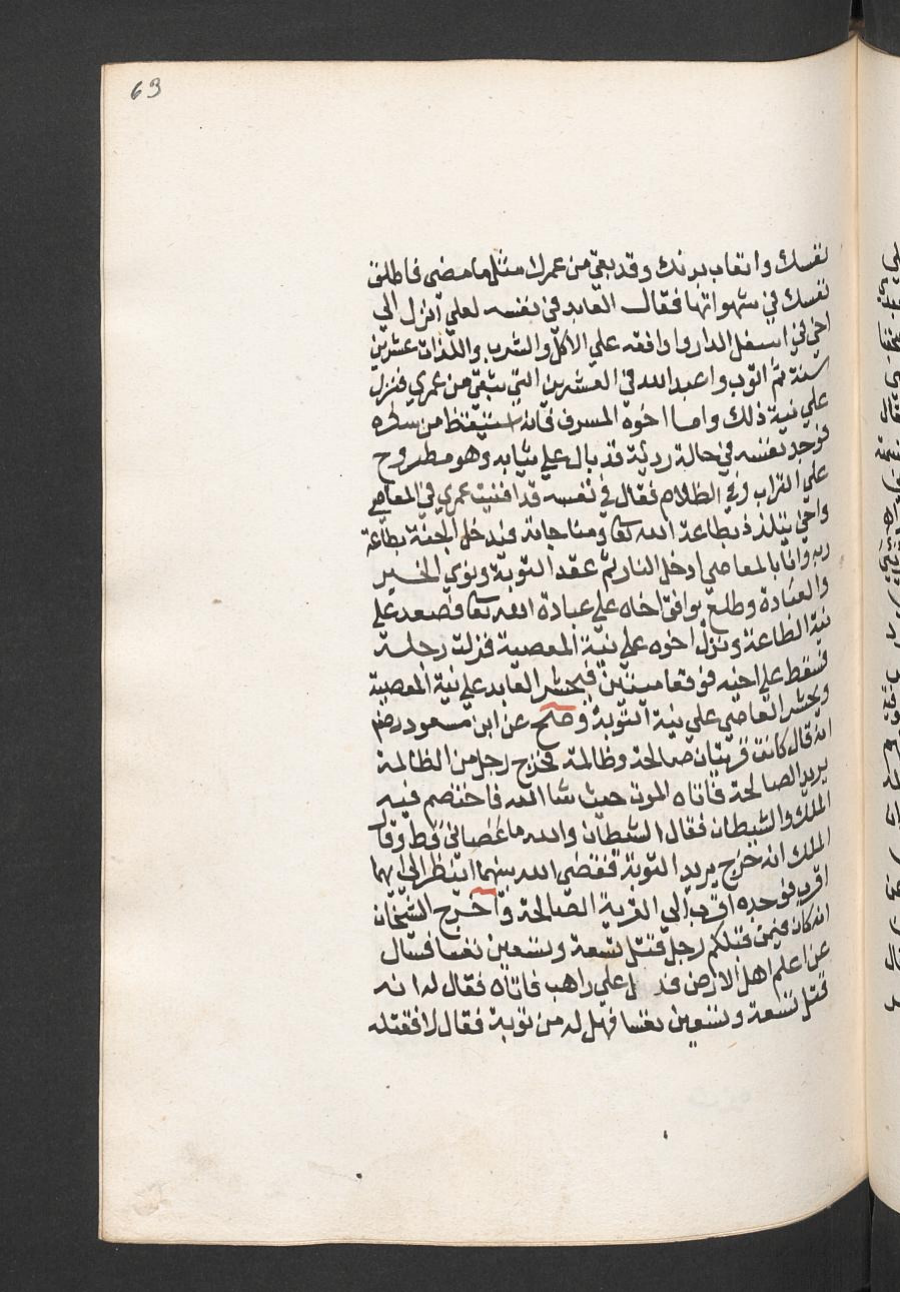 63
نفسك واتعاب بدنك وقد بقي من عمرك مثل ما مضى فاطلق
نفسك في شهواتها فقال العابد في نفسه لعلي انزل الي
اخي في اسفل الدار واوافقه علي الاكل والشرب واللذات عشرين
سنة ثم اتوب واعبد الله في العشرين التي تبقي من عمري فنزل
علي نية ذلك واما اخوه المسرف فانه استيقظ من سكره
فوجد نفسه في حالة ردية قد بال علي ثيابه وهو مطروح
علي التراب وفي الظلام فقال في نفسه قد افنيت عمري في المعاصي
واخي يتلذذ بطاعة الله تعا ومناجاته فيدخل الجنة بطاعة
ربه وانا بالمعاصي ادخل النار ثم عقد التوبة ونوي الخير
والعبادة وطلع يوافق اخاه علي عبادة الله تعا فصعد علي
نية الطاعة ونزل اخوه علي نية المعصية فزلت رجله
فسقط علي اخيه فوقعا ميتين فيحشر العابد علي نية المعصية
ويحشر العاصي علي نية التوبة وصح عن ابن مسعود رضي
انه قال كانت قريتان صالحة وظالمة فخرج رجل من الظالمة
يريد الصالحة فاتاه الموت حيث شا الله فاختصم فيه
الملك والشيطان فقال الشيطان والله ما عصاني قط وقال
الملك انه خرج يريد التوبة فقضي الله بينهما انينظر الي ايهما
اقرب فوجده اقرب الي القرية الصالحة واخرج الشيخان
انه كان فيمن قبلكم رجل قتل تسعة وتسعين نفسا فسال
عن اعلم اهل الارض فد ل علي راهب فاتاه فقال له انه
قتل تسعة وتسعين نفسا فهل له من توبة فقال لا فقتله